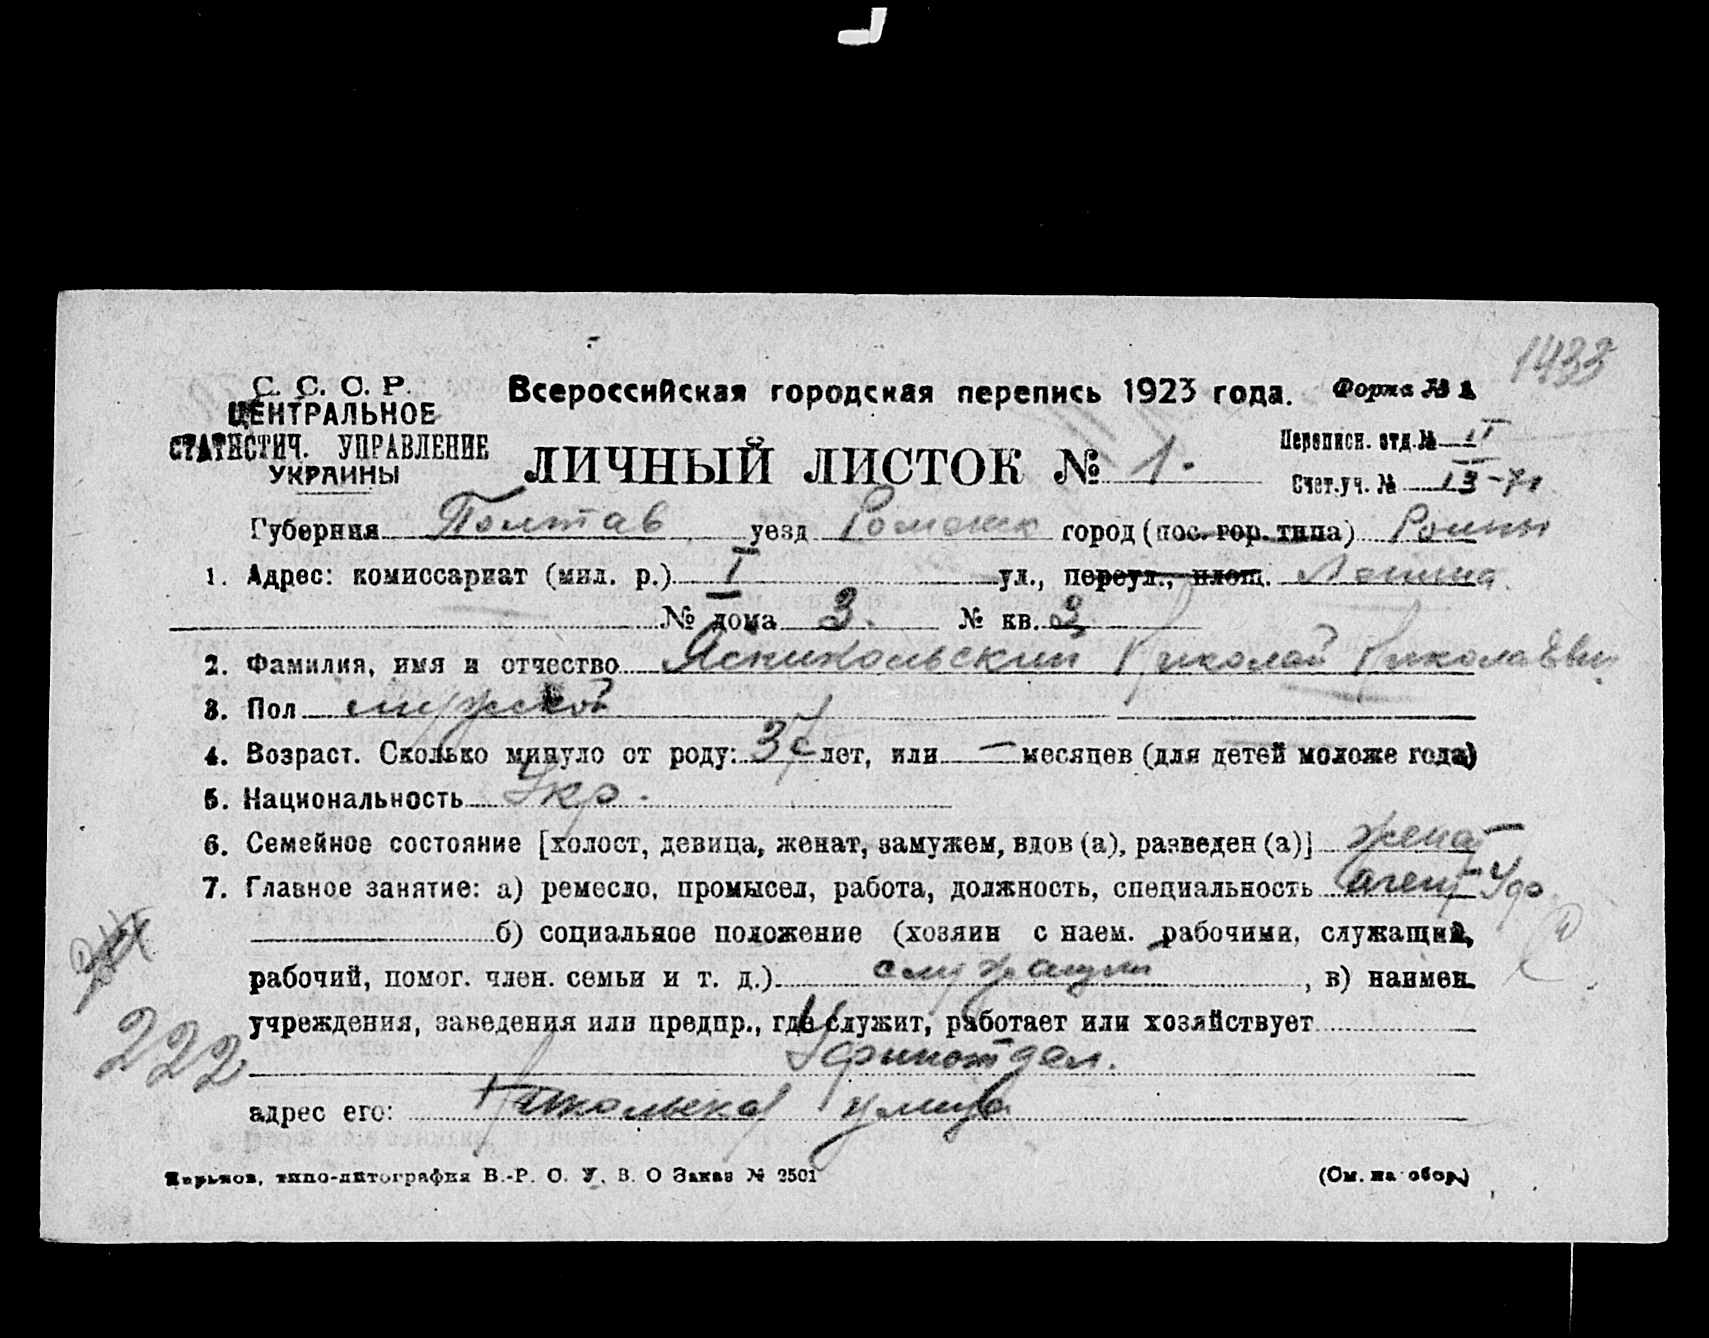 1433
С. С. С. Р.
ЦЕНТРАЛЬНОЕ
СТАТИСТИЧ. УПРАВЛЕНИЕ
УКРАИНЫ
Всероссийская городская перепись 1923 года. Форма № 1
ЛИЧНЫЙ ЛИСТОК № 1.
Переписн. отд. № II
Счет. уч. №
Губерния Полтав уезд Роменск город (пос. гор. типа) Ромны
1. Адрес: комиссариат (мил. р.) I ул., переул., площ. Ленина.
№ дома 3. № кв. 2
2. Фамилия, имя и отчество Ясникольский Николай Николаевич
3. Пол мужской
4. Возраст. Сколько минуло от роду: 37 лет, или — месяцев (для детей моложе года)
5. Национальность Укр.
6. Семейное состояние [холост, девица, женат, замужем, вдов (а), разведен (а)] женат
7. Главное занятие: а) ремесло, промысел, работа, должность, специальность агент Уфо
б) социальное положение (хозяин с наем. рабочими, служащий,
рабочий, помог. член. семьи и т. д.) служащий, в) наимен.
учреждения, заведения или предпр., где служит, работает или хозяйствует
Уфинотдел.
222
адрес его: Никольская улица
Харьков, типо-литография В.-Р. О. У. В. О Заказ № 2501 (См. на обор.)